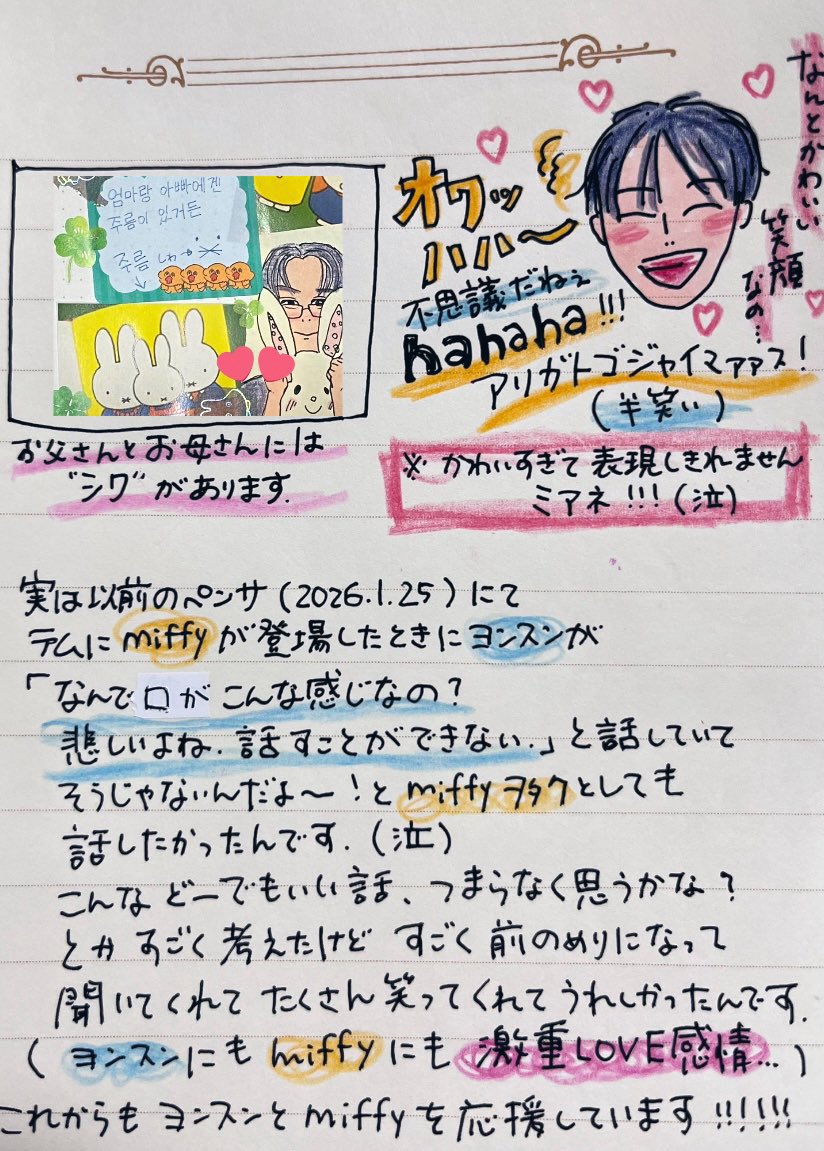 엄마랑 아빠에겐
주름이 있거든
주름 しわ
お父さんとお母さんには
"シワ"があります.
オワッ
ハハハ〜
不思議だねぇ
hahaha!!!
アリガトゴジャイマァァス!
(半笑い)
なんとかわいい
笑顔
なの...
※かわいすぎて表現しきれません
ミアネ!!!(泣)
実は以前のペンサ(2026.1.25)にて
テムにmiffyが登場したときにヨンスンが
「なんで口がこんな感じなの?
悲しいよね.話すことができない.」と話していて
そうじゃないんだよ〜!とmiffyヲタクとしても
話したかったんです.(泣)
こんなどーでもいい話、つまらなく思うかな?
とかすごく考えたけどすごく前のめりになって
聞いてくれてたくさん笑ってくれてうれしかったんです.
(ヨンスンにもmiffyにも激重LOVE感情...)
これからもヨンスンとmiffyを応援しています!!!!!!